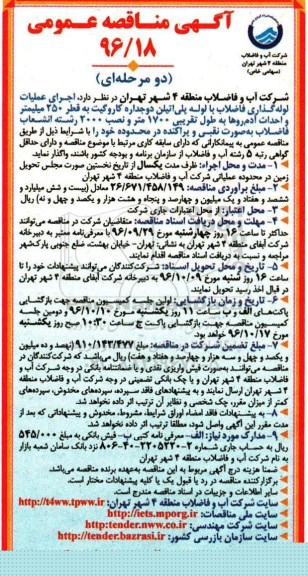 آگهی مناقصه عمومی
۹۶/۱۸
(دو مرحله‌ای)
شرکت آب و فاضلاب
منطقه ۴ شهر تهران
(سهامی خاص)
شرکت آب و فاضلاب منطقه ۴ شهر تهران در نظر دارد، اجرای عملیات
لوله‌گذاری فاضلاب با لوله پلی‌اتیلن دوجداره کاروگیت به قطر ۲۵۰ میلیمتر
و احداث آدم‌روها به طول تقریبی ۱۷۰۰ متر و نصب ۲۰۰۰ رشته انشعاب
فاضلاب به‌صورت نقبی و پراکنده در محدوده خود را با شرایط ذیل از طریق
مناقصه عمومی به پیمانکارانی که دارای سابقه کاری مرتبط با موضوع مناقصه و دارای حداقل
گواهی رتبه ۵ رشته آب و فاضلاب از سازمان برنامه و بودجه کشور باشند، واگذار نماید.
۱- مدت و محل اجراء: ظرف مدت یکسال از تاریخ نخستین صورت مجلس تحویل
زمین در محدوده عملیاتی شرکت آب و فاضلاب منطقه ۴ شهر تهران
۲- مبلغ برآوردی مناقصه: ۲۶/۶۷۱/۴۵۸/۱۴۹ معادل (بیست و شش میلیارد و
ششصد و هفتاد و یک میلیون و چهارصد و پنجاه و هشت هزار و یکصد و چهل و نه) ریال
۳- محل اعتبار: از محل اعتبارات جاری شرکت
۴- مهلت و محل دریافت اسناد مناقصه: متقاضیان شرکت در مناقصه می‌توانند
حداکثر تا ساعت ۱۶ روز چهارشنبه مورخ ۹۶/۰۹/۲۹ با معرفی‌نامه معتبر به دبیرخانه
شرکت آبفای منطقه ۴ شهر تهران به نشانی: تهران- خیابان بهشت، ضلع جنوبی پارک‌شهر
مراجعه و نسبت به دریافت اسناد مناقصه اقدام نمایند.
۵- تاریخ و محل تحویل اسناد: شرکت‌کنندگان می‌توانند پیشنهادات خود را تا
ساعت ۱۶ روز شنبه مورخ ۹۶/۱۰/۰۹ به دبیرخانه شرکت آبفای منطقه ۴ شهر تهران
در قبال اخذ رسید تحویل نمایند.
۶- تاریخ و زمان بازگشایی: اولین جلسه کمیسیون مناقصه جهت بازگشایی
پاکت‌های الف و ب ساعت ۱۱ روز یکشنبه مورخ ۹۶/۱۰/۱۰ و دومین جلسه
کمیسیون مناقصه جهت بازگشایی پاکت ج ساعت ۱۰:۳۰ صبح روز یکشنبه
مورخ ۹۶/۱۰/۱۷ خواهد بود.
۷- مبلغ تضمین شرکت در مناقصه: ۹۱۰/۱۴۲/۴۷۷ (نهصد و ده میلیون
و یکصد و چهل و سه هزار و چهارصد و هفتاد و هفت) ریال می‌باشد که شرکت‌کنندگان در
مناقصه می‌توانند به‌صورت فیش واریزی نقدی و یا ضمانتنامه بانکی در وجه شرکت آب و
فاضلاب منطقه ۴ شهر تهران و یا چک بانکی تضمینی در وجه شرکت آب و فاضلاب منطقه
۴ شهر تهران ارسال نمایند و به پیشنهادهای فاقد سپرده، سپرده‌های مخدوش، سپرده‌های
کمتر از میزان مقرر، چک شخصی و نظایر آن ترتیب اثر داده نخواهد شد.
۸- به پیشنهادات فاقد امضاء اوراق شرایط، مشروط، مخدوش و پیشنهاداتی که بعد از
مدت مقرر این آگهی واصل شود، مطلقا ترتیب اثر داده نخواهد شد.
۹- مدارک مورد نیاز: الف- معرفی نامه کتبی ب- فیش بانکی به مبلغ ۵۴۵/۰۰۰
ریال به حساب جاری شماره ۲-۲۲۰۵۲۲-۴۰-۸۰۶ نزد بانک سامان شعبه بازار
به نام شرکت آب و فاضلاب منطقه ۴ شهر تهران
ضمنا هزینه درج آگهی مربوط به این مناقصه به‌عهده برنده مناقصه می‌باشد.
برگزارکننده مناقصه در رد یا قبول یک یا کلیه پیشنهادات مختار است.
سایر اطلاعات و جزییات در اسناد مناقصه مندرج است.
سایت شرکت آب و فاضلاب منطقه ۴ شهر تهران: http://t4ww.tpww.ir
سایت ملی مناقصات: http://iets.mporg.ir
سایت شرکت مهندسی: http:tender.nww.co.ir
سایت سازمان بازرسی کشور: http://tender.bazrasi.ir